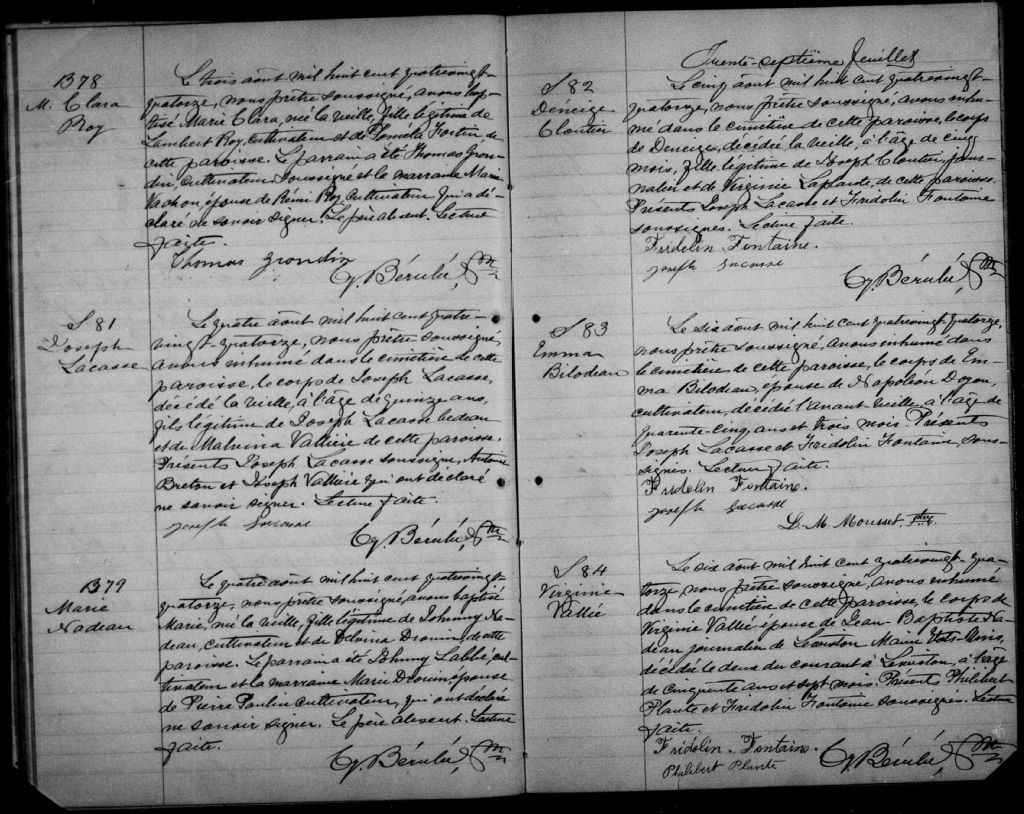 B78
M. Clara
Roy
Le trois août mil huit cent quatrevingt-
quatorze, nous prêtre soussigné, avons bap-
tisé Marie Clara, née la veille, fille légitime de
Lambert Roy, cultivateur et de Pomela Fortin de
cette paroisse. Le parrain a été Thomas Gron-
din, cultivateur soussigné et la marraine Marie
Vachon, épouse de Rémi Roy, cultivateur qui a dé-
claré ne savoir signer. Le père absent. Lecture
faite.
Thomas Grondin
Cy. Bérubé, Ptre
S81
Joseph
Lacasse
Le quatre août mil huit cent quatre-
vingt-quatorze, nous prêtre soussigné,
avons inhumé dans le cimetière de cette
paroisse, le corps de Joseph Lacasse,
décédé la veille, à l'âge de quinze ans,
fils légitime de Joseph Lacasse bedeau
et de Malvina Vallière de cette paroisse.
Présents Joseph Lacasse soussigné, Antoine
Breton et Joseph Vallière qui ont déclaré
ne savoir signer. Lecture faite.
Joseph Lacasse
Cy. Bérubé, Ptre
B79
Marie
Nadeau
Le quatre août mil huit cent quatrevingt-
quatorze, nous prêtre soussigné, avons baptisé
Marie, née la veille, fille légitime de Johnny Na-
deau, cultivateur et de Delvina Drouin, de cette
paroisse. Le parrain a été Johnny Labbé, cul-
tivateur et la marraine Marie Drouin, épouse
de Pierre Poulin cultivateur, qui ont déclaré
ne savoir signer. Le père absent. Lecture
faite.
Cy. Bérubé, Ptre
Trente-septième feuillet
S82
Déneige
Cloutier
Le cinq août mil huit cent quatrevingt-
quatorze, nous prêtre soussigné, avons inhu-
mé dans le cimetière de cette paroisse, le corps
de Deneige, décédée la veille, à l'âge de cinq
mois, fille légitime de Joseph Cloutier, jour-
nalier et de Virginie Laplante, de cette paroisse.
Présents Joseph Lacasse et Fridolin Fontaine
soussignés. Lecture faite.
Fridolin Fontaine.
Joseph Lacasse
Cy. Bérubé, Ptre
S83
Emma
Bilodeau
Le six août mil huit cent quatrevingt-quatorze,
nous prêtre soussigné, avons inhumé dans
le cimetière de cette paroisse, le corps de Em-
ma Bilodeau, épouse de Napoléon Doyon,
cultivateur, décédée l'avant-veille, à l'âge de
quarente-cinq ans et trois mois. Présents
Joseph Lacasse et Fridolin Fontaine, sous-
signés. Lecture faite.
Fridolin Fontaine.
Joseph Lacasse
L. M. Mousset, ptre.
S84
Virginie
Vallée
Le six août mil huit cent quatrevingt-qua-
torze nous prêtre soussigné, avons inhumé
dans le cimetière de cette paroisse, le corps de
Virginie Vallée épouse de Jean-Baptiste Na-
deau journalier de Lewiston Maine Etats-Unis,
décédée le deux du courant à Lewiston, à l'âge
de cinquante ans et sept mois. Présent Philibert
Plante et Fridolin Fontaine soussignés. Lecture
faite.
Fridolin Fontaine.
Philibert Plante
Cy. Bérubé, Ptre